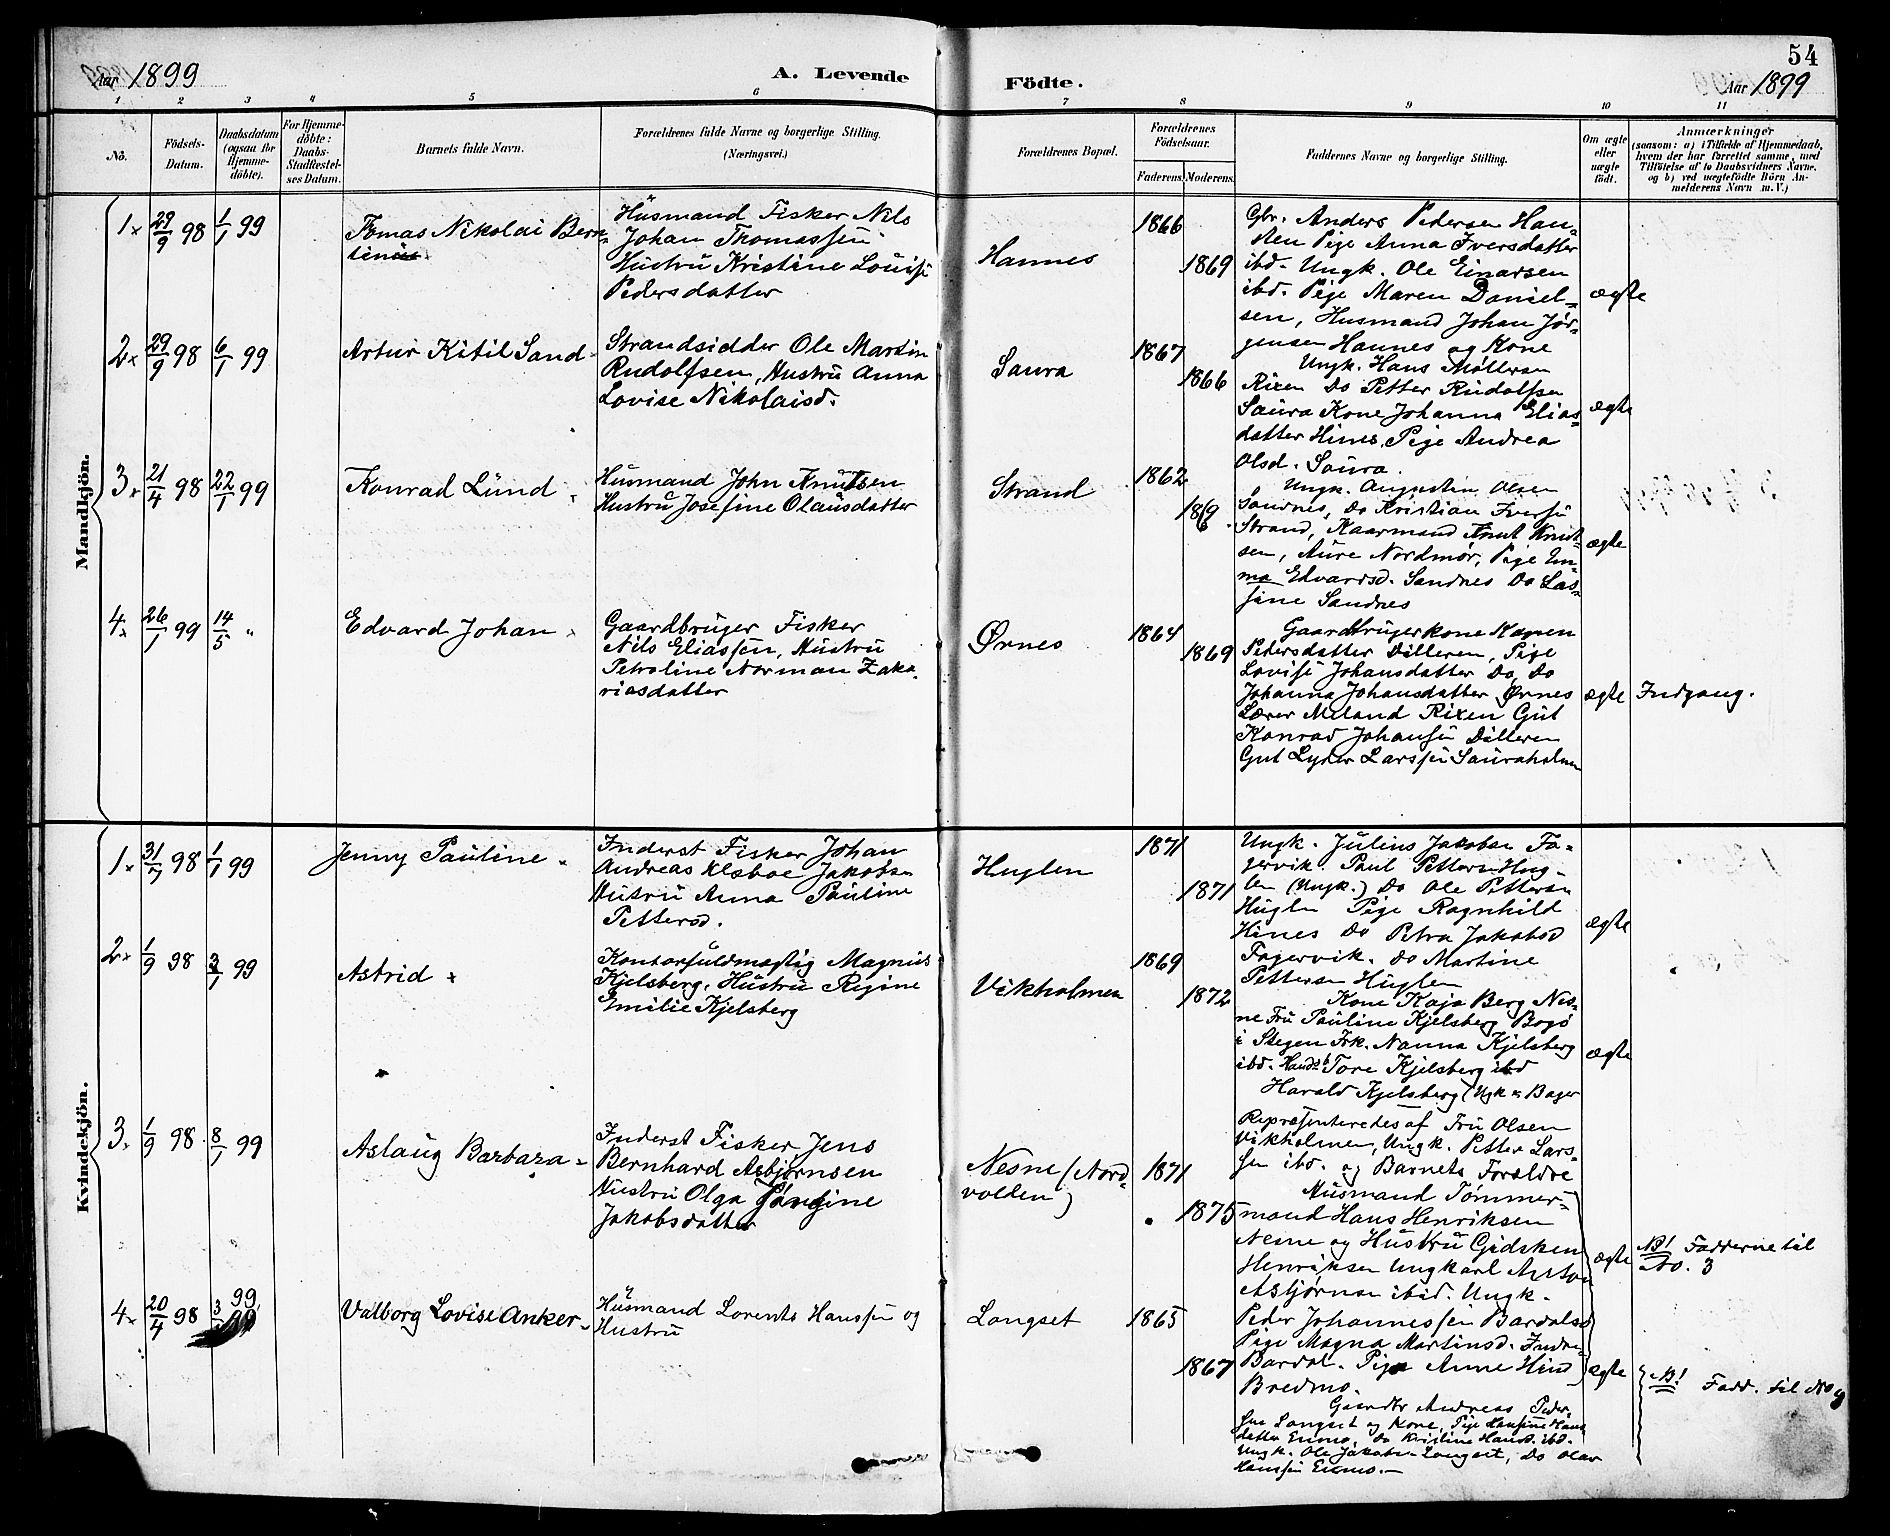 54
Aar 1899
A. Levende
Födte.
Aar 1899
1 2 3 4 5 6 7 8 9 10 11
No.
Födsels-
Datum.
Daabsdatum
(ogsaa for
Hjemme-
döbte).
For Hjemme-
döbte:
Daabs-
Stadfestel-
ses Datum.
Barnets fulde Navn.
Forældrenes fulde Navne og borgerlige Stilling.
(Næringsvei.)
Forældrenes Bopæl.
Forældrenes
Födselsaar.
Faderens. Moderens.
Faddernes Navne og borgerlige Stilling.
Om ægte
eller
uægte
födt.
Anmærkninger
(saasom: a) i Tilfælde af Hjemmedaab,
hvem der har forrettet samme, med
Tilföielse af to Daabsvidners Navne,
og b) ved uægtefödte Börn An-
melderens Navn m. V.)
Mandkjön.
1 x 29/9 98 1/1 99
Tomas Nikolai Bern-
tinus
Husmand Fisker Nils
Johan Thomassen
Hustru Kristine Lovise
Pedersdatter
Hannes
1866
1869
Gbr. Anders Pedersen Han-
Pige Anna Iversdatter
ibd. Ungk. Ole Einarsen
ibd. Pige Maren Daniel-
sen, Husmand Johan Jör-
gensen Hannes og Kone
ægte
2 x 29/9 98 6/1 99
Artur Kitil Sand
Strandsidder Ole Martin
Rudolfsen, Hustru Anna
Lovise Nikolaisd.
Saura
1867
1866
Ungk. Hans Möllersen
Rixen Do Petter Rudolfsen
Saura Kone Johanna Elias-
datter Hines, Pige Andrea
Olsd. Saura.
ægte
3 x 21/4 98 22/1 99
Konrad Lund
Husmand John Knutsen
Hustru Josefine Olausdatter
Strand
1862
1869
Ungk. Augustin Olsen
Sandnes, Do Kristian Iversen
Strand, Kaarmand Knut Knut-
sen, Aure Nordmør, Pige Em-
ma Edvardsd. Sandnes Do Las-
sine Sandnes
ægte
4 x 26/1 99 14/5 "
Edvard Johan
Gaardbruger Fisker
Nils Eliassen, Hustru
Petroline Norman Zaka-
riasdatter
Ørnes
1864
1869
Gaardbrugerkone Karen
Pedersdatter Dilleren, Pige
Lovise Johansdatter Do, Do
Johanna Johansdatter Ørnes
Lærer Meland Rixen Gut
Konrad Johansen Dilleren
Gut Lyder Larssen Sauraholmen
ægte
Indgang.
Kvindekjön.
1 x 31/7 98 1/1 99
Jenny Pauline
Inderst Fisker Johan
Andreas Alsboe Jakobsen
Hustru Anna Pauline
Pettersd.
Huglen
1871
1871
Ungk. Julius Jakobsen Fa-
gervik. Paul Pettersen Hug-
len (Ungk.) Do Ole Pettersen
Huglen Pige Ragnhild
Hines Do Petra Jakobsd
Fagervik. Do Martine
Pettersen Huglen
ægte
2 x 1/9 98 3/1 99
Astrid
Kontorfuldmægtig Magnus
Kjelsberg, Hustru Regine
Emilie Kjelsberg
Vikholmen
1869
1872
Kone Kaja Berg Nes-
ne Fru Pauline Kjelsberg Bogö
i Stegen Frk. Nanna Kjelsberg
ibd. Tore Kjelsberg ibd
Harald Kjelsberg
Repræsenteredes af Fru Olsen
Vikholmen, Ungk. Petter Lars-
sen ibd. og Barnets Forældre
ægte
3 x 1/9 98 8/1 99
Aslaug Barbara
Inderst Fisker, Jens
Bernhard Asbjørnsen
Hustru Olga
Jakobsdatter
Nesne (Nord-
volden)
1871
1875
Husmand Tømmer-
mand Hans Henriksen
Nesne og Hustru Gidsken
Henriksen Ungkarl Anton
Asbjørnsen ibid. Ungk.
Peder Johannessen Bardalss
Pige Magna Martinsd. Indre
Bardal. Pige Anne Hind
Bredmo.
ægte
NB! Fadderne til
No. 3
4 x 20/4 98 3/ 99
Valborg Lovise Anker
Husmand Lorents Hanssen og
Hustru
Longset
1865
1867
Gaardbr Andreas Peder-
sen Longset og Kone, Pige Hansine Hans-
datter Enmo, Do Kristine Hansd. ibd.
Ungk. Ole Jakobsen Longset, Do Olav
Hanssen Enmo.
ægte
NB! Fadd. til No 4